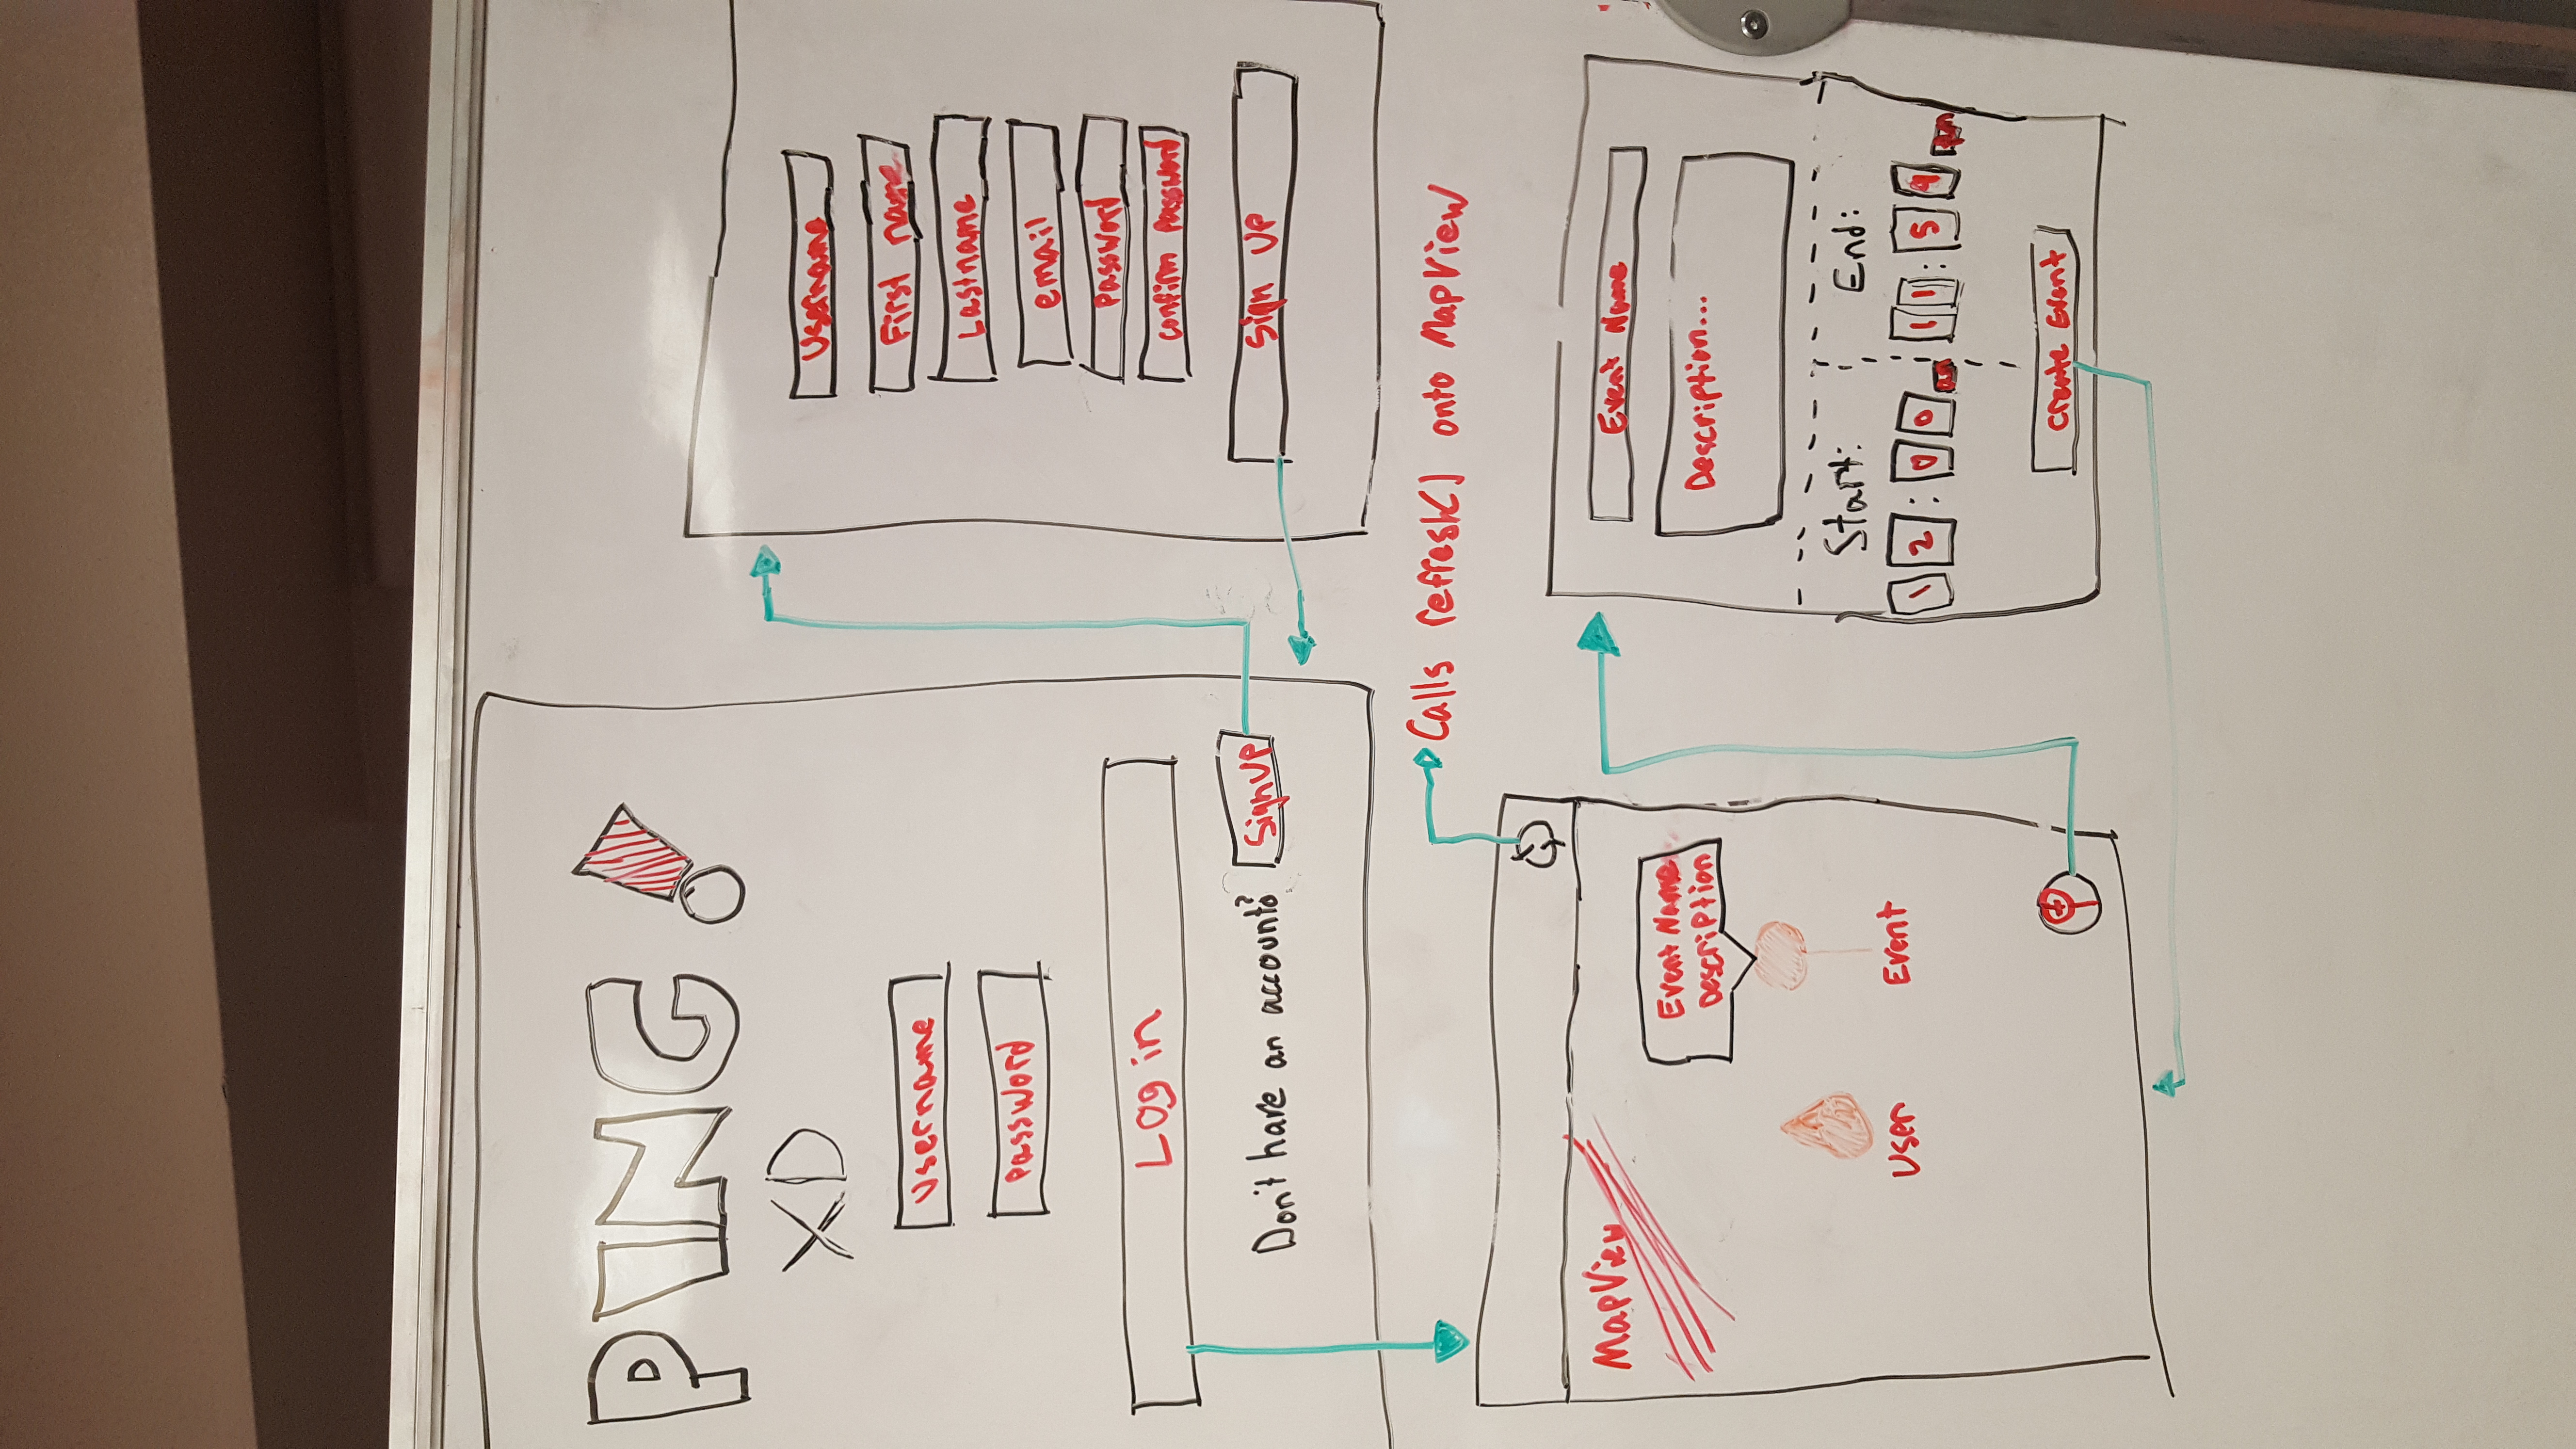 PING!
XD
Username
Password
Log in
Don't have an account?
Sign UP
Username
First name
Lastname
email
Password
confirm Password
Sign UP
Calls refresh() onto MapView
MapView
Event Name
Description
User
Event
Event Name
Description...
Start:
End:
12:00 am
11:59 pm
Create Event